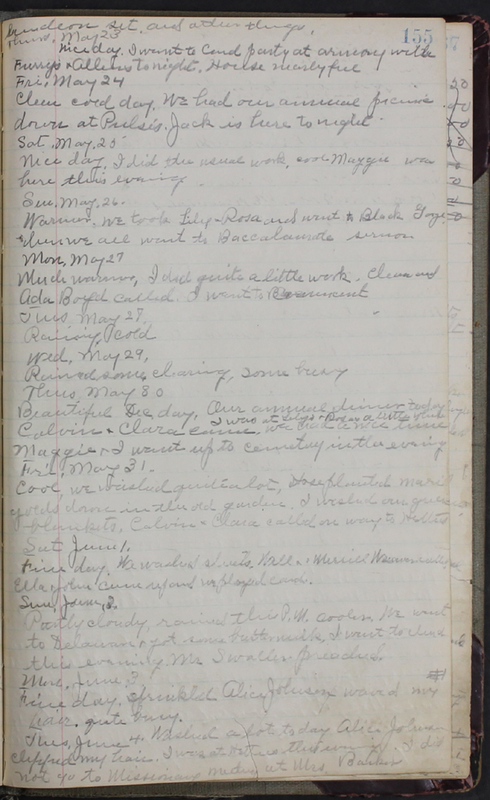 luncheon set, and other things.
155
Thurs, May 23
Nice day. I went to Card party at armory with
Furrys & Allens tonight. House nearly full
Fri, May 24
Clear cold day. We had our annual picnic
down at Pulsis. Jack is here tonight
Sat, May, 25
Nice day, I did the usual work, cool Maggie was
here this evening.
Sun, May, 26.
Warmer, we took Lily & Rosa and went to Black
then we all went to Baccalaureate sermon
Mon, May 27
Much warmer, I did quite a little work. Clara and
Ada Boyed called. I went to
Tues May 27,
Rainy, cold
Wed, May 29,
Rained some, clearing, some busy
Thus, May 30
Beautiful Dec day, Our annual dinner today
I was at Lilys & Rosa a little while
Calvin & Clara came, we had a nice time
Maggie & I went up to cemetery in the evening
Fri, May 31.
Cool we washed quite a lot, planted
down in the old garden. I washed our
blankets, Calvin & Clara called on way to
Sat June 1.
Fine day. We washed sheets. Will & Merrill
Ella & John came up and we played card.
Sun, June, 2.
Partly cloudy, rained this P.M. cooler. We went
to Delaware & got some buttermilk, I went to church
this evening Mr Swaller preached.
Mon, June 3
Fine day, sprinkled Alice Johnson waved my
hair. quite busy.
Tues, June 4, Washed a lot today Alice Johnson
clipped my hair. I was at this eve I did
not go to Missionary meeting at Mrs.